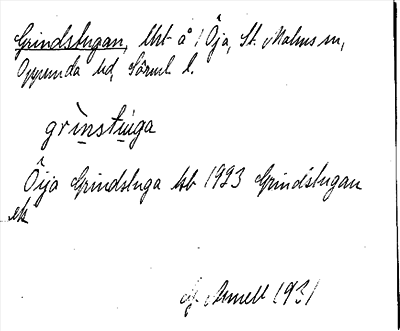 Grindstugan, lht å Öja, St. Malms sn,
Oppunda hd, Sörml l.
grìnstu̇ga
Öija Grindstuga lht 1923 Grindstugan
ek
Arnell 1931